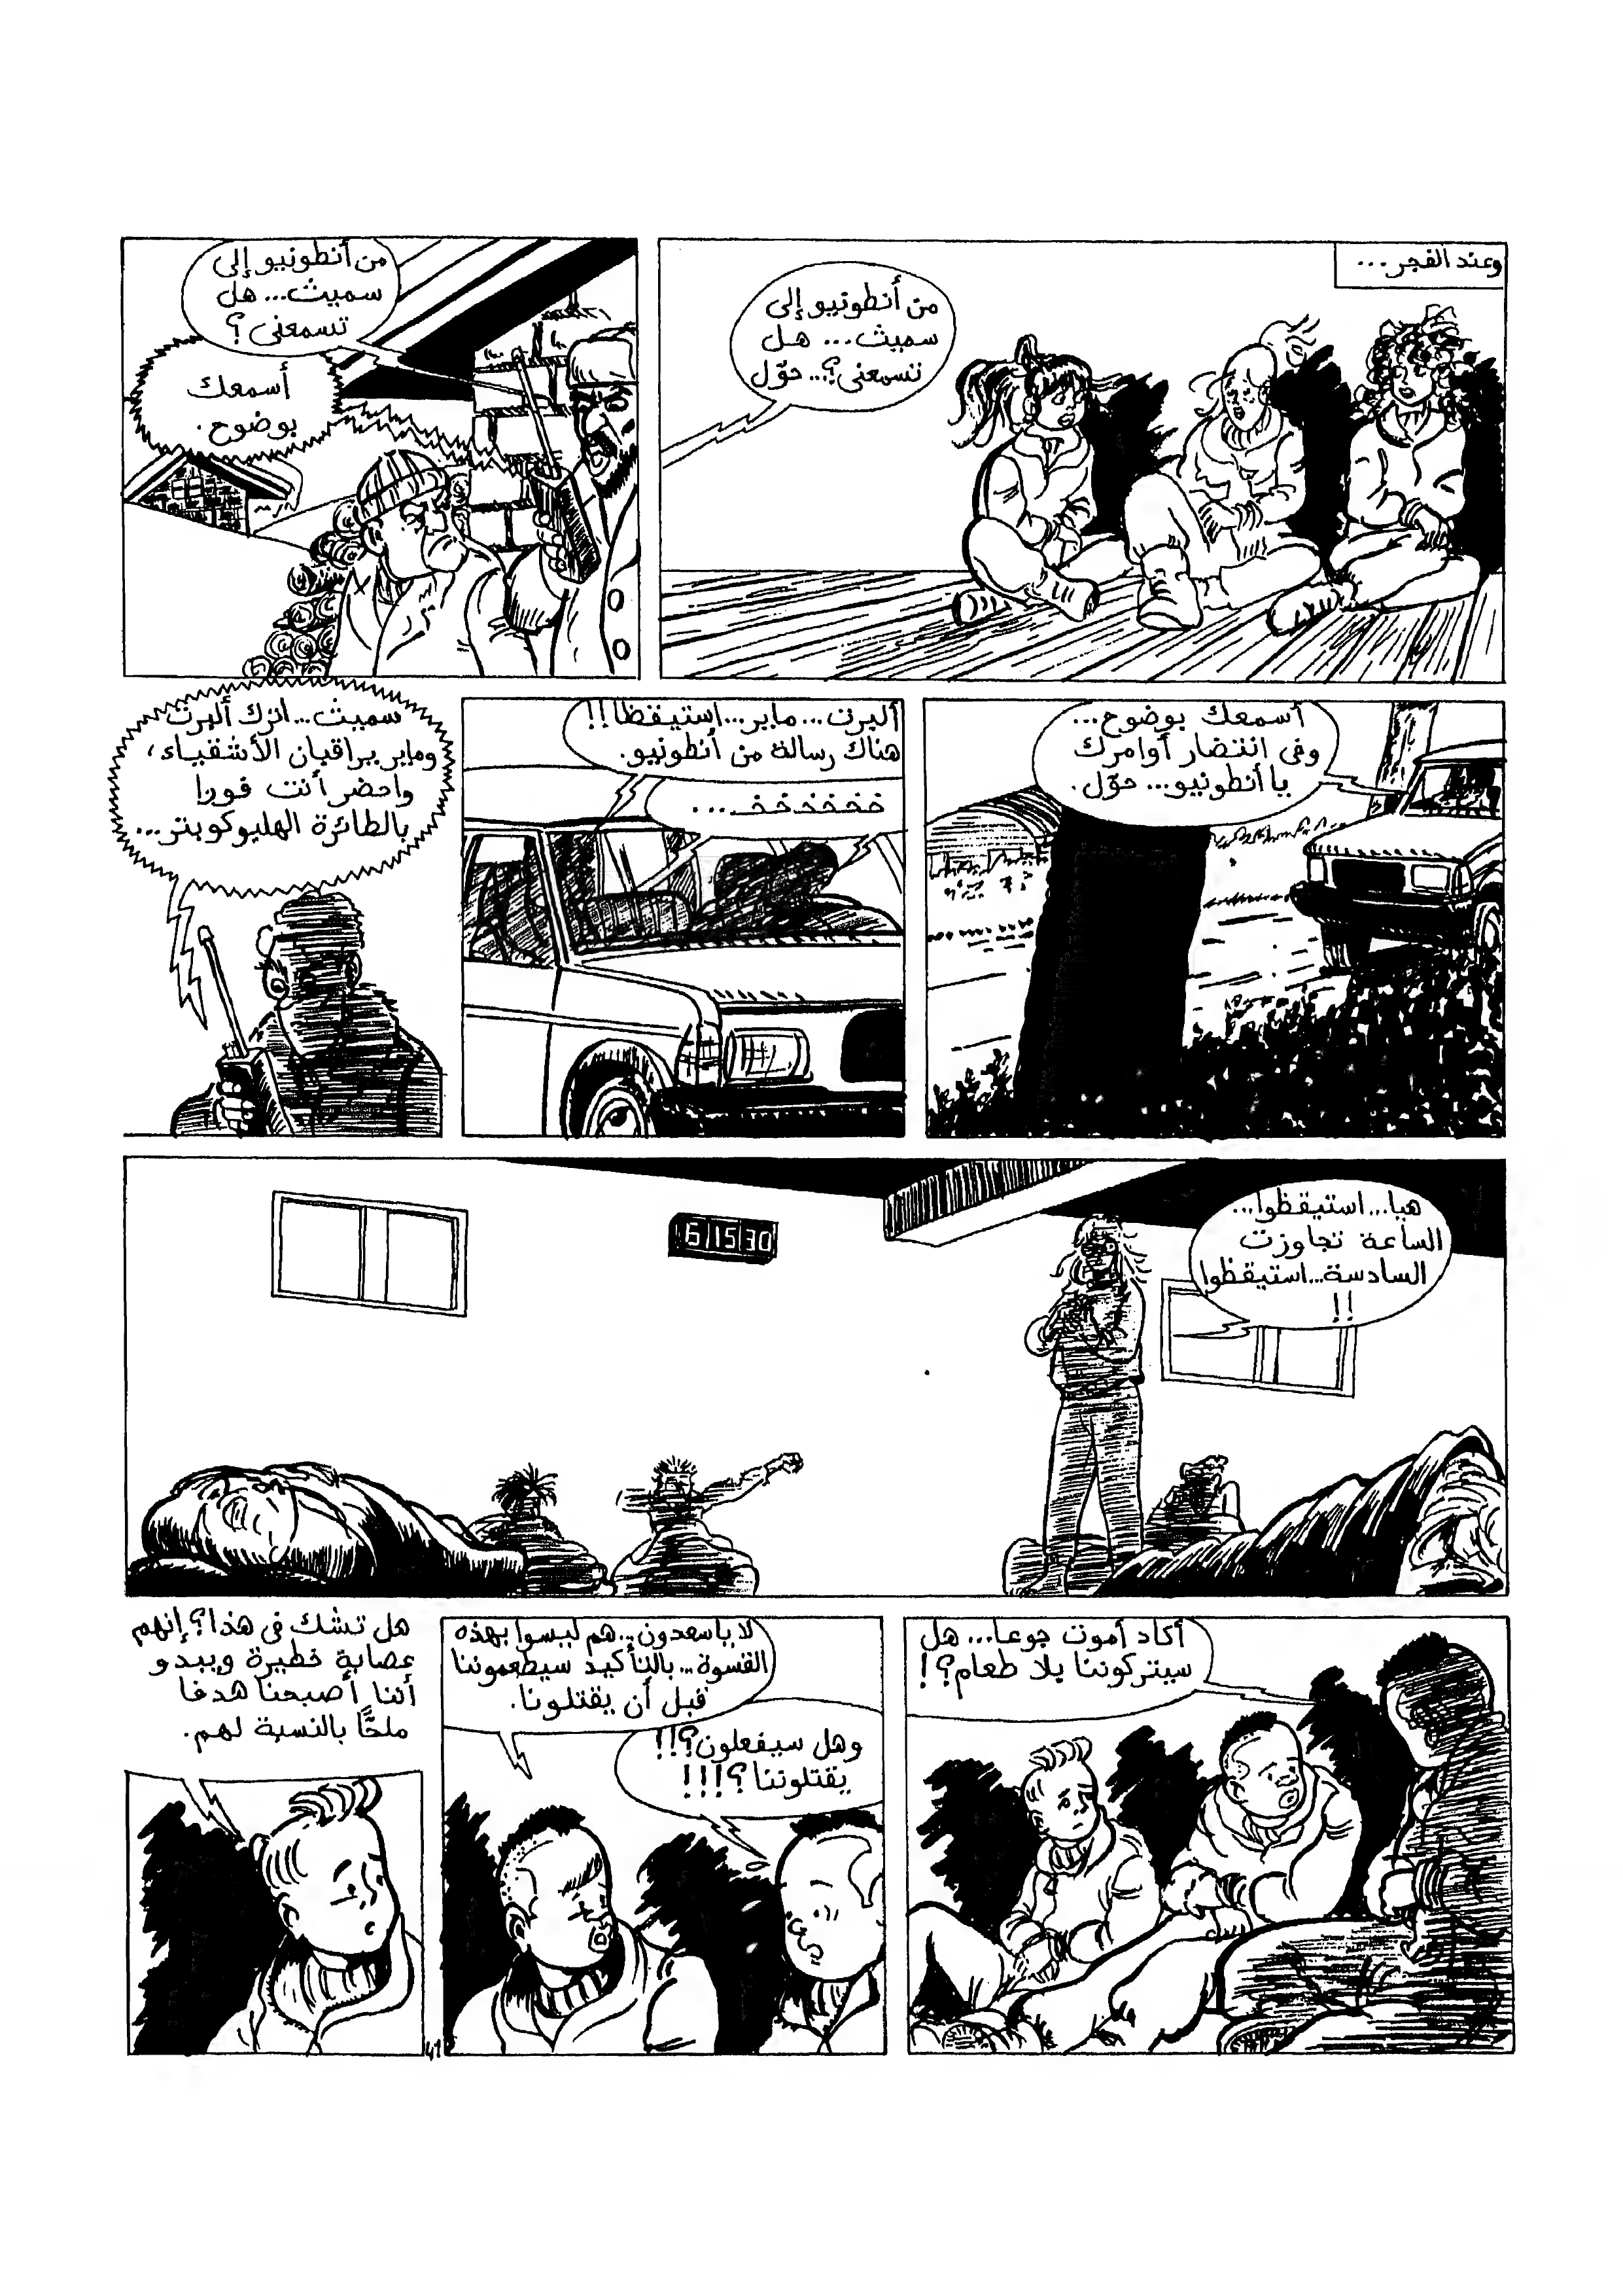 وعند الفجر...
من أنطونيو إلى
سميث... هل
تسمعنى؟... حوّل
من أنطونيو إلى
سميث... هل
تسمعنى؟
أسمعك
بوضوح.
أسمعك بوضوح...
وفى انتضار أوامرك
يا أنطونيو... حوّل.
ألبرت... ماير... استيقظا!!
هناك رسالة من أنطونيو.
خخخخخخ...
سميث... اترك ألبرت
وماير يراقبان الأشقياء،
واحضر أنت فورا
بالطائرة الهليوكوبتر...
هيا... استيقظوا...
الساعة تجاوزت
السادسة... استيقظوا
!!
6 15 30
أكاد أموت جوعا... هل
سيتركوننا بلا طعام؟!
لا ياسعدون... هم ليسوا بهذه
القسوة... بالتأكيد سيطعموننا
قبل أن يقتلونا.
وهل سيفعلون؟!!
يقتلوننا؟!!!
هل تشك فى هذا؟ إنهم
عصابة خطيرة ويبدو
أننا أصبحنا هدفا
ملحًّا بالنسبة لهم.
41